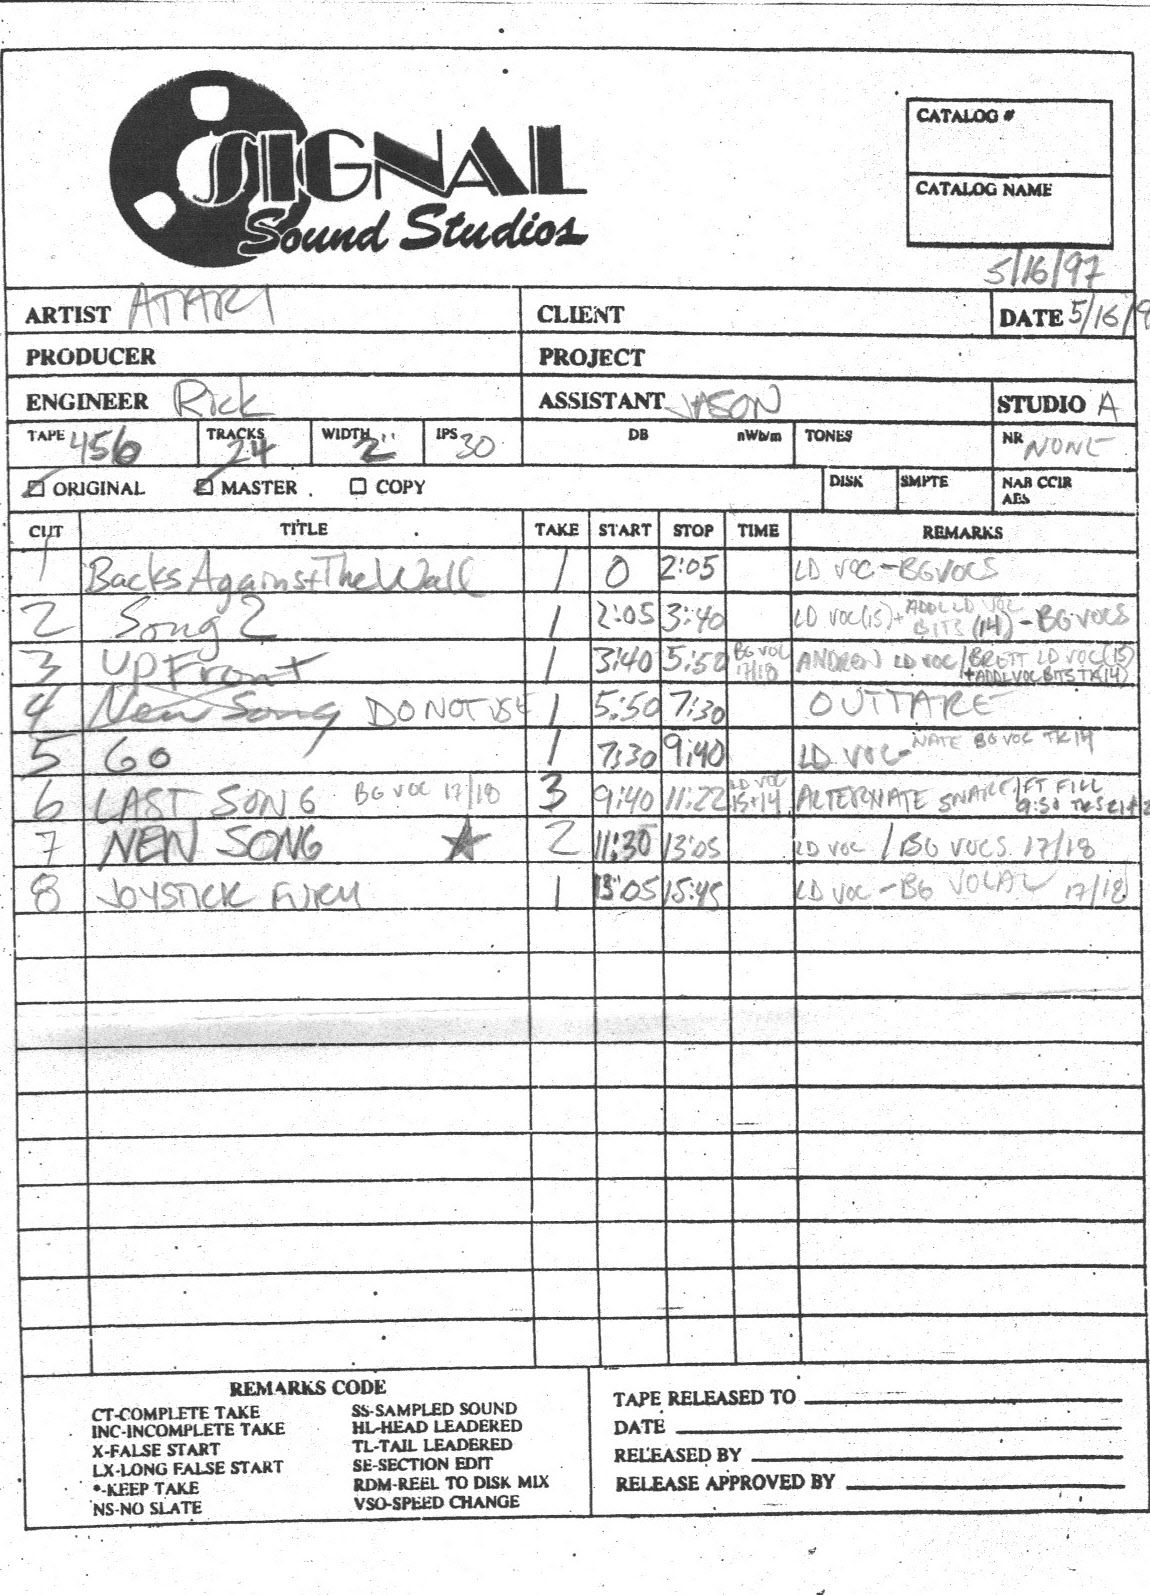 SIGNAL
Sound Studios
CATALOG #
CATALOG NAME
5/16/97
ARTIST ATARI
CLIENT
DATE 5/16/9
PRODUCER
PROJECT
ENGINEER Rick
ASSISTANT JASON
STUDIO A
TAPE 456 TRACKS 24 WIDTH 2" IPS 30 DB nWb/m TONES NR NONE
ORIGINAL MASTER COPY DISK SMPTE NAB CCIR
AES
CUT TITLE TAKE START STOP TIME REMARKS
1 Backs Against The Wall 1 0 2:05 LD VOC - BGVOCS
2 Song 2 1 2:05 3:40 LD VOC(15) + ADDL LD VOC BITS (14) - BG VOCS
3 Up Front 1 3:40 5:50 BG VOC 17/18 ANDREW LD VOC / BRETT LD VOC (15)
+ADDL VOC BITS TK 14)
4 New Song DO NOT USE 1 5:50 7:30 OUTTAKE
5 GO 1 7:30 9:40 LD VOC - NATE BG VOC TK 14
6 LAST SONG BG VOC 17/18 3 9:40 11:22 LD VOC 15+14 ALTERNATE SNARE/FT FILL
9:50 TKS 21+2
7 NEW SONG ★ 2 11:30 13:05 LD VOC / BG VOCS 17/18
8 JOYSTICK 1 13:05 15:45 LD VOC - BG VOCAL 17/18
REMARKS CODE
CT-COMPLETE TAKE
INC-INCOMPLETE TAKE
X-FALSE START
LX-LONG FALSE START
*-KEEP TAKE
NS-NO SLATE
SS-SAMPLED SOUND
HL-HEAD LEADERED
TL-TAIL LEADERED
SE-SECTION EDIT
RDM-REEL TO DISK MIX
VSO-SPEED CHANGE
TAPE RELEASED TO
DATE
RELEASED BY
RELEASE APPROVED BY